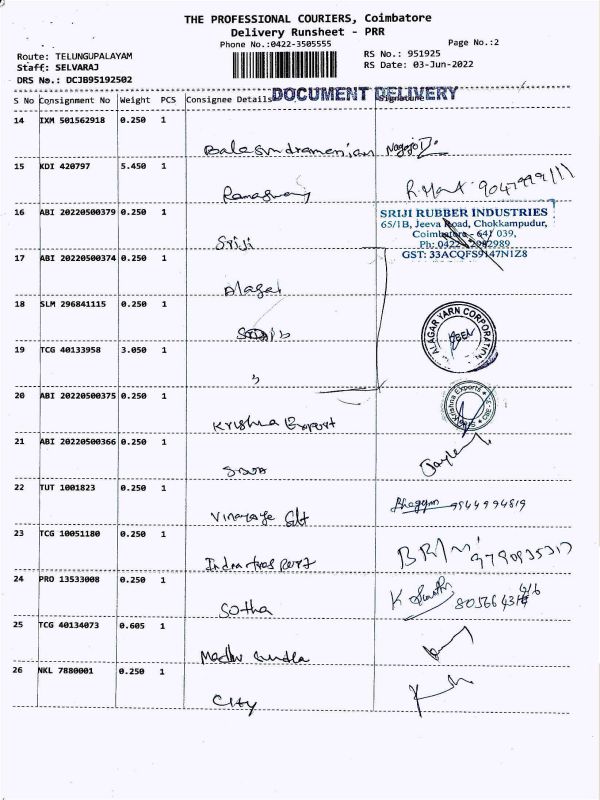 THE PROFESSIONAL COURIERS, Coimbatore
Delivery Runsheet - PRR
Phone No.:0422-3505555
Page No.:2
Route: TELUNGUPALAYAM
Staff: SELVARAJ
DRS No.: DCJB95192502
RS No.: 951925
RS Date: 03-Jun-2022
S No Consignment No Weight PCS Consignee Details DOCUMENT DELIVERY Signature
14 IXM 501562918 0.250 1
15 KDI 420797 5.450 1
Ramaswamy
16 ABI 20220500379 0.250 1
Sriji
SRIJI RUBBER INDUSTRIES
65/1B, Jeeva Road, Chokkampudur,
Coimbatore - 641 039,
Ph: 0422 - 2982989
GST: 33ACQFS9147N1Z8
17 ABI 20220500374 0.250 1
Alagar
18 SLM 296841115 0.250 1
ALAGAR YARN CORPORATION
19 TCG 40133958 3.050 1
"
20 ABI 20220500375 0.250 1
Krishna Export
Krishna Exports
21 ABI 20220500366 0.250 1
22 TUT 1001823 0.250 1
9544994819
23 TCG 10051180 0.250 1
24 PRO 13533008 0.250 1
Sotha
25 TCG 40134073 0.605 1
26 NKL 7880001 0.250 1
City